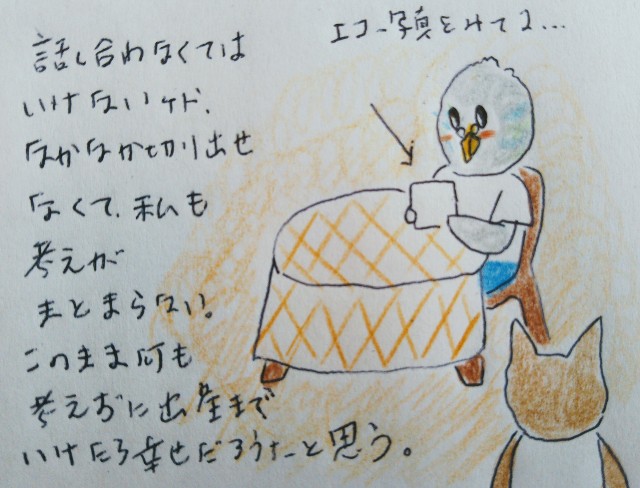 エコー写真をみてる...
話し合わなくては
いけないケド、
なかなか切り出せ
なくて、私も
考えが
まとまらない。
このまま何も
考えずに出産まで
いけたら幸せだろうなーと思う。